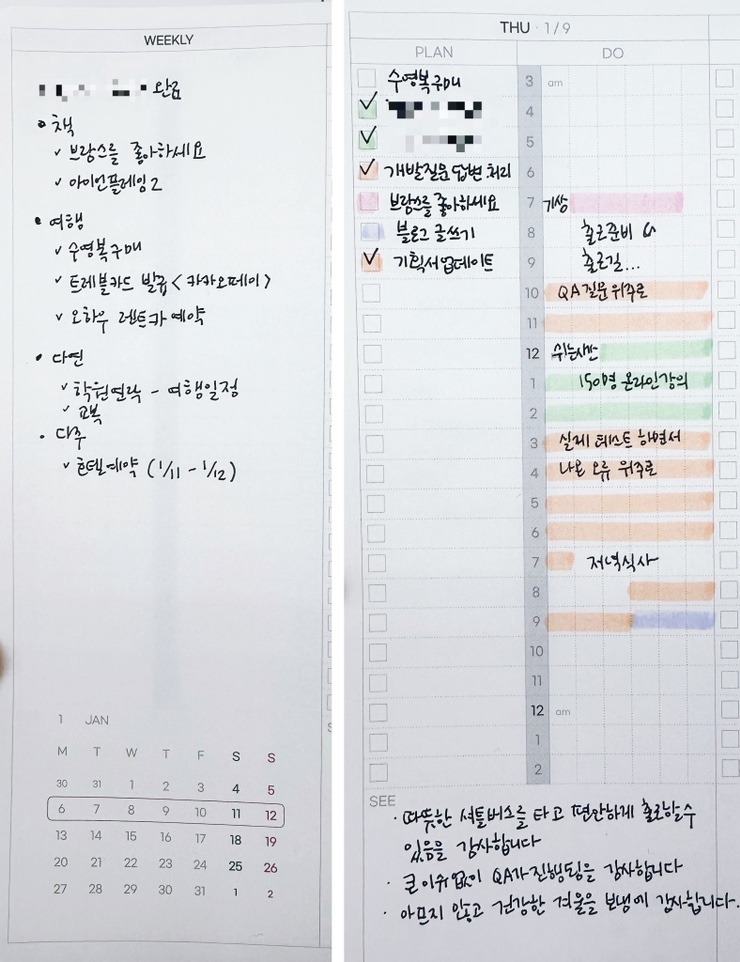 WEEKLY
완료
• 책
✓ 브람스를 좋아하세요
✓ 아이언플레임2
• 여행
✓ 수영복구매
✓ 트래블카드 발급 < 카카오페이 >
✓ 오하우 렌트카 예약
• 다연
✓ 학원연락 - 여행일정
✓ 교복
• 다주
✓ 호텔예약 (1/11 - 1/12)
1 JAN
M T W T F S S
30 31 1 2 3 4 5
6 7 8 9 10 11 12
13 14 15 16 17 18 19
20 21 22 23 24 25 26
27 28 29 30 31 1 2
THU · 1/9
PLAN DO
수영복구매
개발질문 답변 처리
브람스를 좋아하세요
블로그 글쓰기
기획서 업데이트
3 am
4
5
6
7 기상
8 출근준비
9 출근길...
10 QA 질문 위주로
11
12 쉬는시간
1 150명 온라인강의
2
3 실제 테스트 하면서
4 나온 오류 위주로
5
6
7 저녁식사
8
9
10
11
12 am
1
2
SEE
· 따뜻한 셔틀버스를 타고 편안하게 출근할수
있음을 감사합니다
· 큰이슈없이 QA가진행됨을 감사합니다
· 아프지 않고 건강한 겨울을 보냄에 감사합니다.